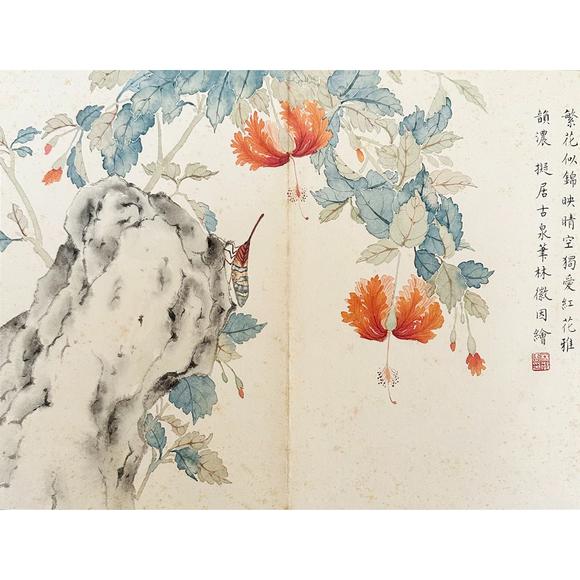 繁花似錦映晴空獨愛紅花雅
韻濃 挺居古泉筆林徽因繪